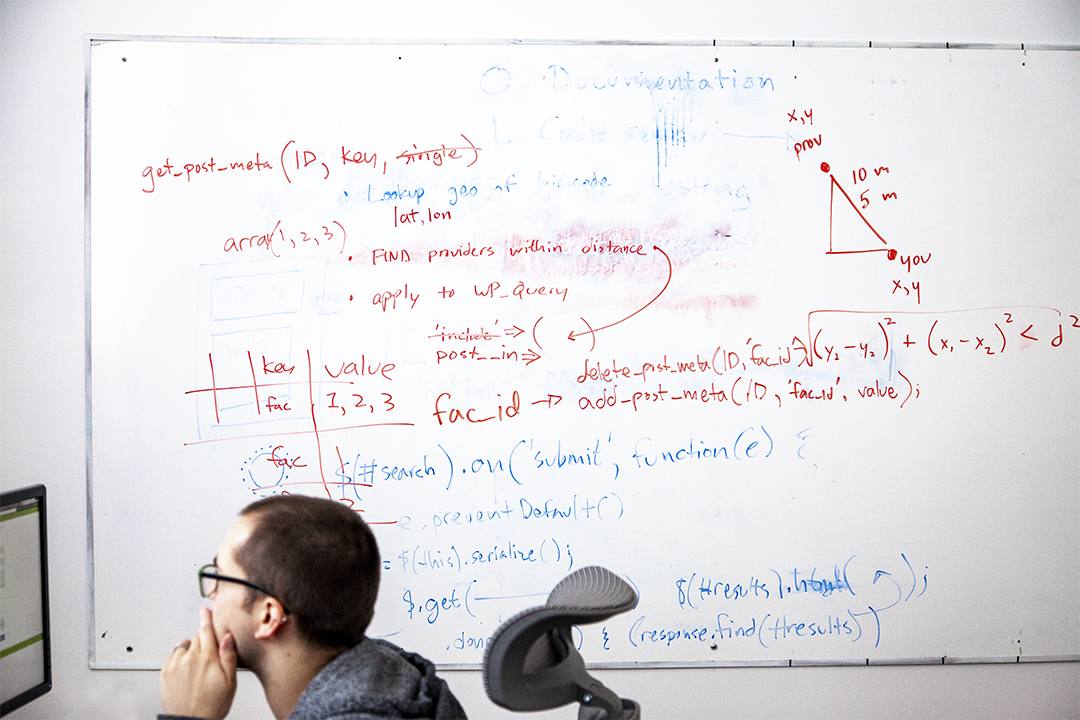 Documentation
get_post_meta (ID, key, single)
Lookup geo of
lat, lon
array(1, 2, 3)
• FIND providers within distance
• apply to WP_Query
'include' => ( )
post__in =>
x,y
prov
10 m
5 m
you
x,y
(y₂-y₂)² + (x₁-x₂)² < d²
delete_post_meta(ID, 'fac_id')
fac_id -> add_post_meta(ID, 'fac_id', value);
key value
fac 1, 2, 3
fac 1
2
$(#search).on('submit', function(e) {
e.preventDefault()
= $(this).serialize();
$.get(
$(#results).html( );
.done ) { (response.find(#results))